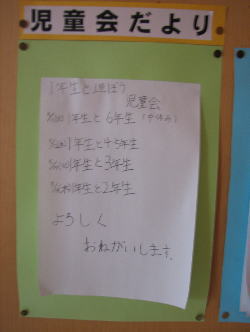 児童会だより
1年生と遊ぼう
児童会
1年生と6年生(中休み)
1年生と4・5年生
1年生と3年生
1年生と2年生
よろしく
おねがいします。